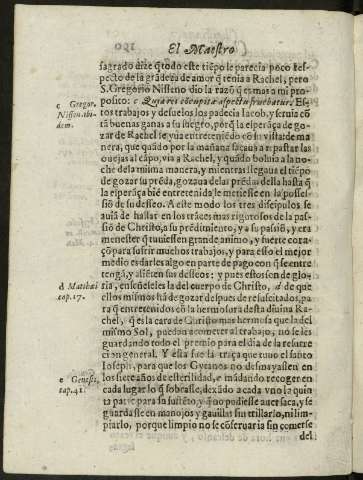 El Maestro
sagrado dize q̃ todo este tiẽpo le parecia poco respecto
de la grãdeza de amor q̃ tenia a Rachel, pero
S. Gregorio Nisseno dio la razõ q̃ es mas a mi proposito:
c Gregor. Nissen. ibidem.
Estos
trabajos y desuelos los padecia Iacob, y seruia cõ
tã buenas ganas a su suegro, porq̃ la esperãça de gozar
de Rachel se yua entreteniendo cõ su vista: de manera,
que quãdo por la mañana sacaua a repastar las
ouejas al cãpo, via a Rachel, y quãdo boluia a la noche
de la misma manera, y mientras llegaua el tiẽpo
de gozar su prẽda, gozaua de las prẽdas della hasta q̃
la esperãça biẽ entretenida le metiesse en la possessiõ
de su desseo. A este modo los tres discipulos se
auiã de hallar en los trãces mas rigurosos de la passiõ
de Christo, a su prẽdimiento, y a su passiõ, y era
menester q̃ tuuiessen grande animo, y fuerte coraçõ
para sufrir muchos trabajos, y para esso el mejor
medio es darles algo en parte de pago con q̃ se entretengã,
y aliẽten sus desseos: y pues estos son de gloria,
enseñeseles la del cuerpo de Christo, d de que
d Matthæi cap. 17.
ellos mismos hã de gozar despues de resuscitados, para
q̃ entretenidos con la hermosura desta diuina Rachel,
q̃ es la cara de Christo mas hermosa que la del
mismo Sol, puedan acometer al trabajo, no se les
guardando todo el premio para el dia de la resurrecion
general. Y esta fue la traça que tuuo el santo
Ioseph, para que los Gytanos no desmayassen en
los siete años de esterilidad, e mãdando recoger en
e Genesis, cap. 41.
cada lugar lo q̃ sobrasse, dexãdo a cada vno la quinta
parte para su sustẽto, y q̃ no pudiesse auer saca, y se
guardasse en manojos y gauillas sin trillarlo, ni limpiarlo,
porque limpio no se cõseruaria sin comerse
del